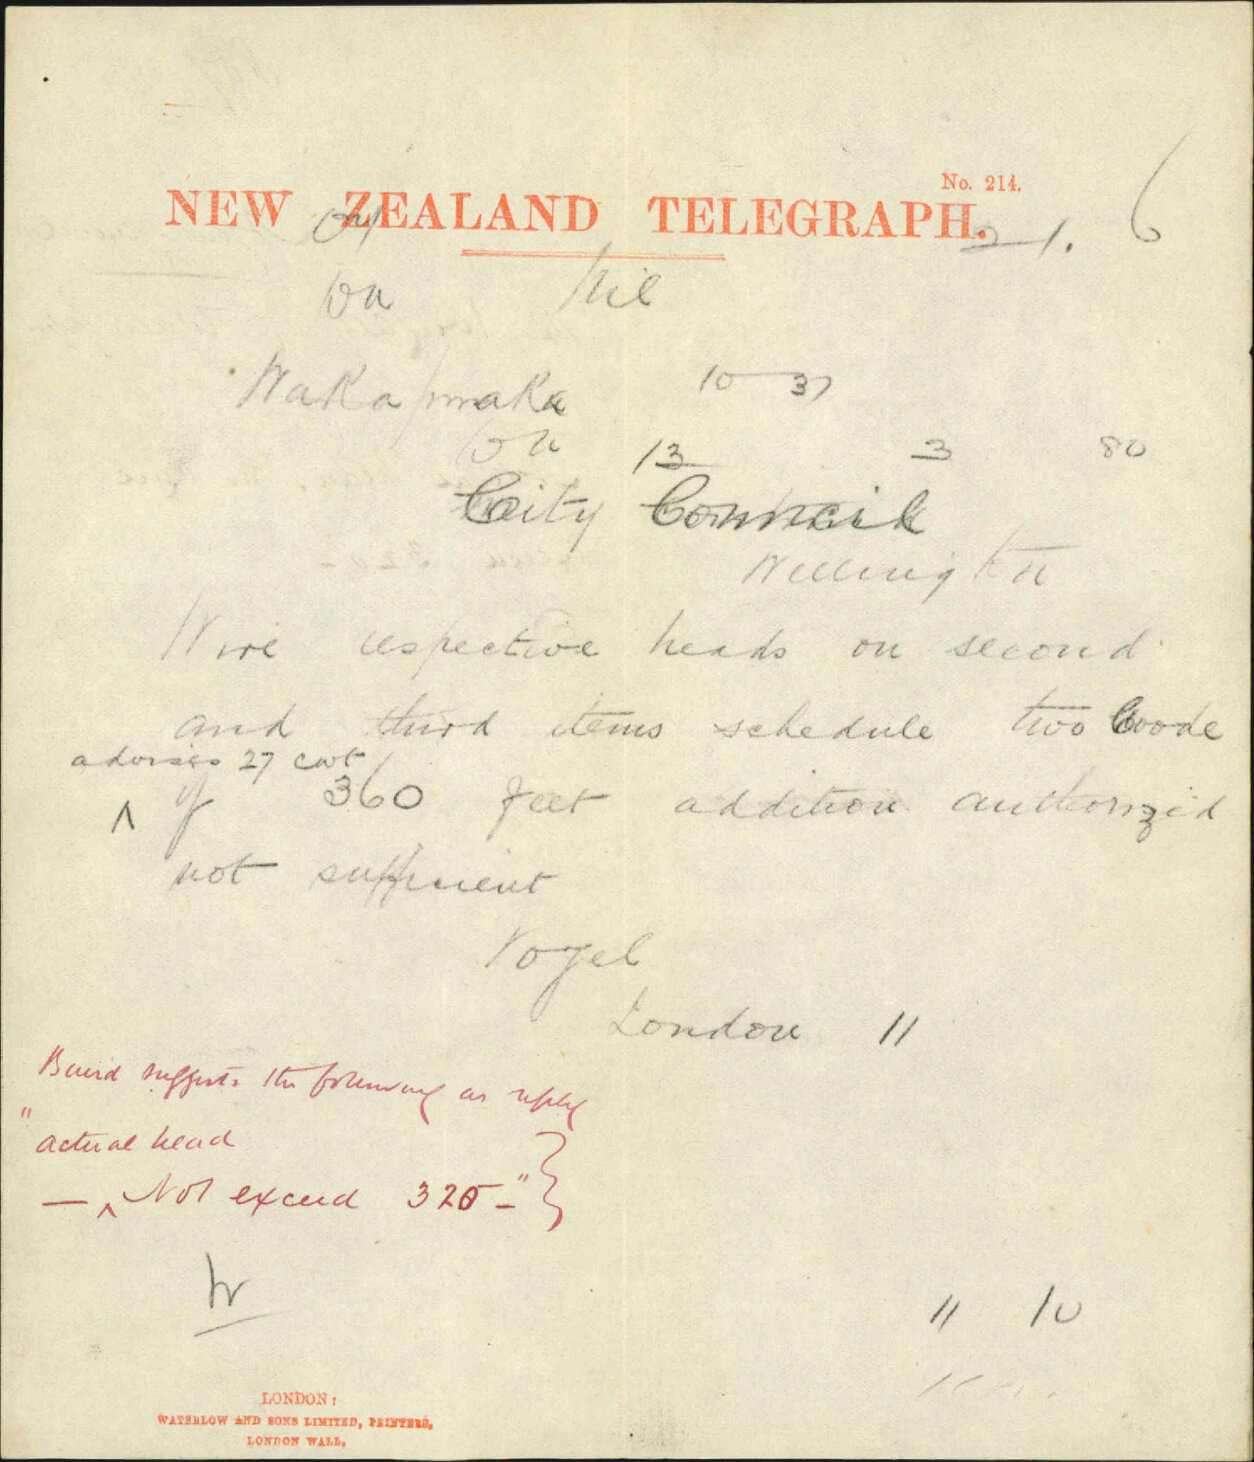 No. 214.
NEW ZEALAND TELEGRAPH.
21. 6
on Nil
Wakapuaka 10 37
on 13 3 80
City Council
Wellington
Wire respective heads on second
and third items schedule two Woode
advises 27 cwt
^ if 360 feet addition authorized
not sufficient
Vogel
London 11
Baird suggests the following as reply
"actual head
— ^ Not exceed 325 –"
W
11 10
LONDON:
WATERLOW AND SONS LIMITED, PRINTERS,
LONDON WALL.